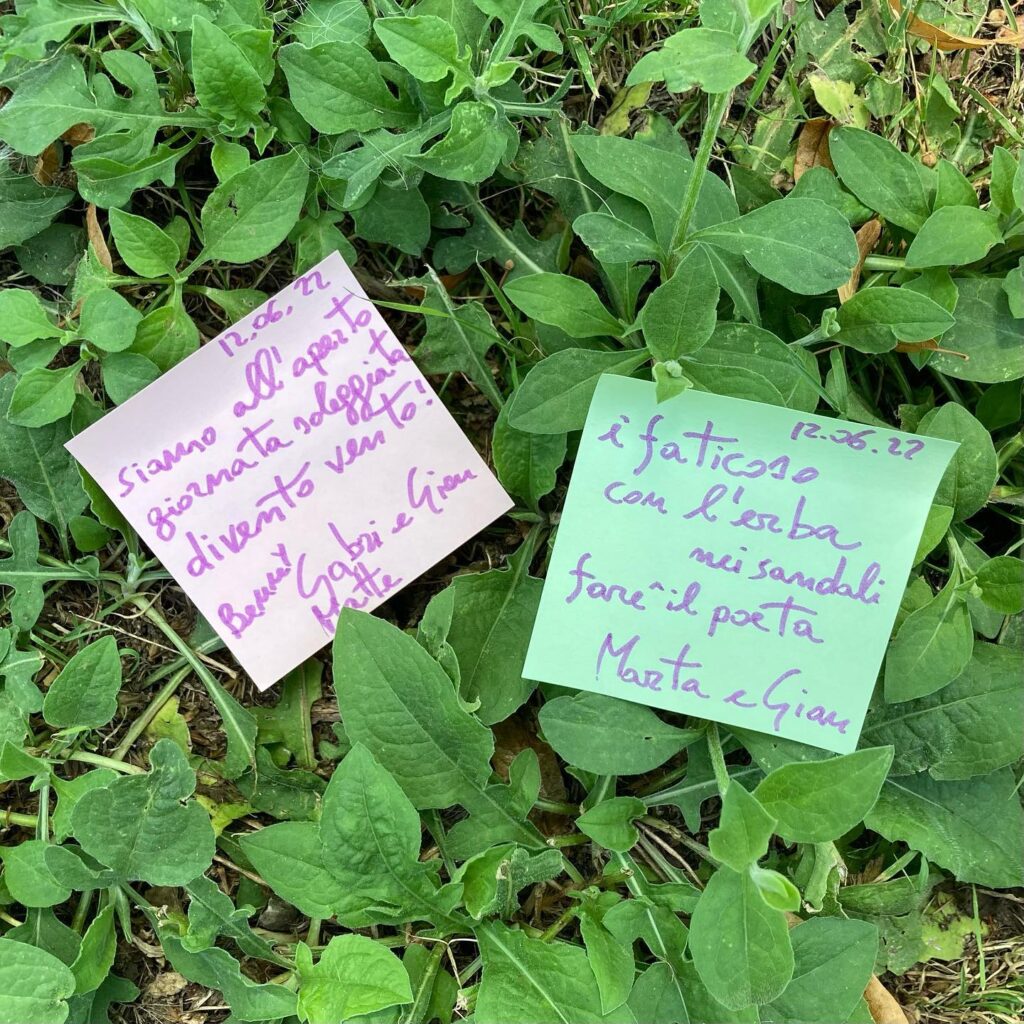 12.06.22
siamo all'aperto
giornata soleggiata
divento vento!
Gabri e Gian
Matte
12.06.22
è faticoso
com l'erba
nei sandali
fare il poeta
Marta e Gian